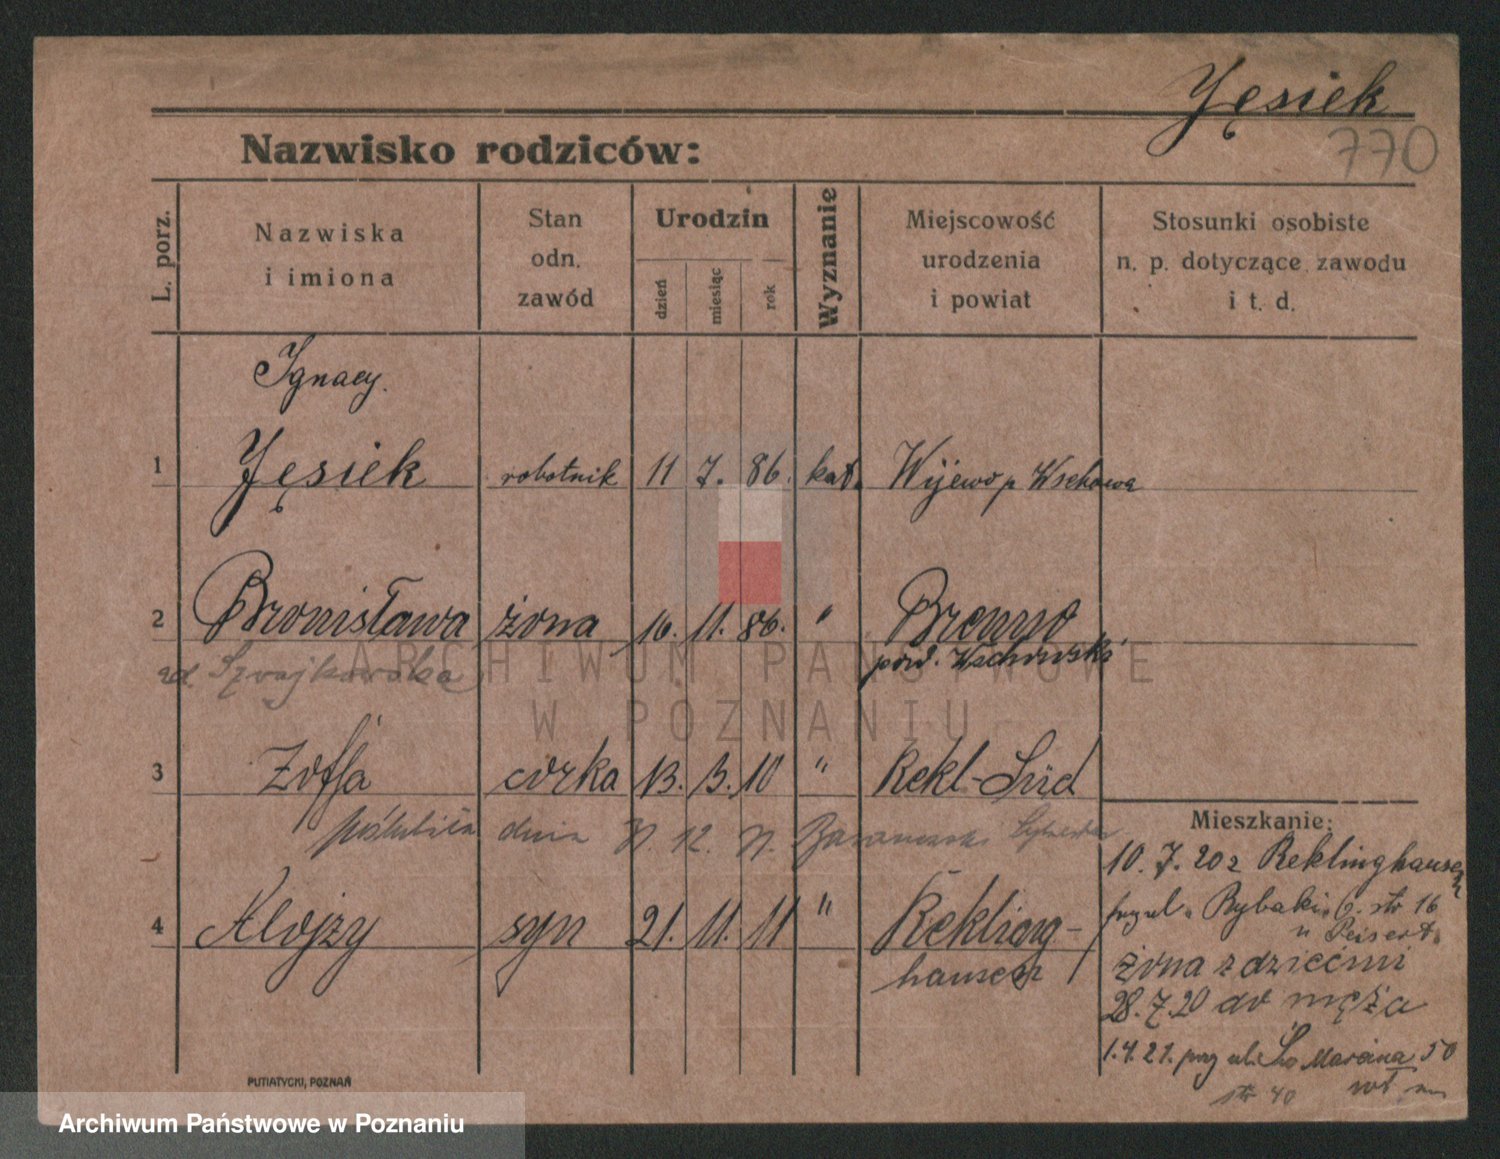 Jęsiek
770
Nazwisko rodziców:
L. porz.
Nazwiska
i imiona
Stan
odn.
zawód
Urodzin
dzień
miesiąc
rok
Wyznanie
Miejscowość
urodzenia
i powiat
Stosunki osobiste
n. p. dotyczące zawodu
i t. d.
Ignacy.
1 Jęsiek robotnik 11 7. 86. kat. Wijewo p Wschowa
2 Bronisława żona 16. 11. 86. " Brenno
pow. Wschowski
zd. Szwajkowska
ARCHIWUM PAŃSTWOWE
W POZNANIU
3 Zofja córka 13. 3. 10 " Rekl-Süd
poślubiła dnia 12. Baranowski Sylwester
4 Alojzy syn 21. 11. 11 " Rekling-
hausen
Mieszkanie:
10. 7. 20 z Reklinghausen
przy ul. Rybaki 6. str 16
u Peisert.
żona z dziećmi
28.7.20 do męża
1.4.21. przy ul. Św Marcina 50
str 40
PUTIATYCKI, POZNAŃ
Archiwum Państwowe w Poznaniu